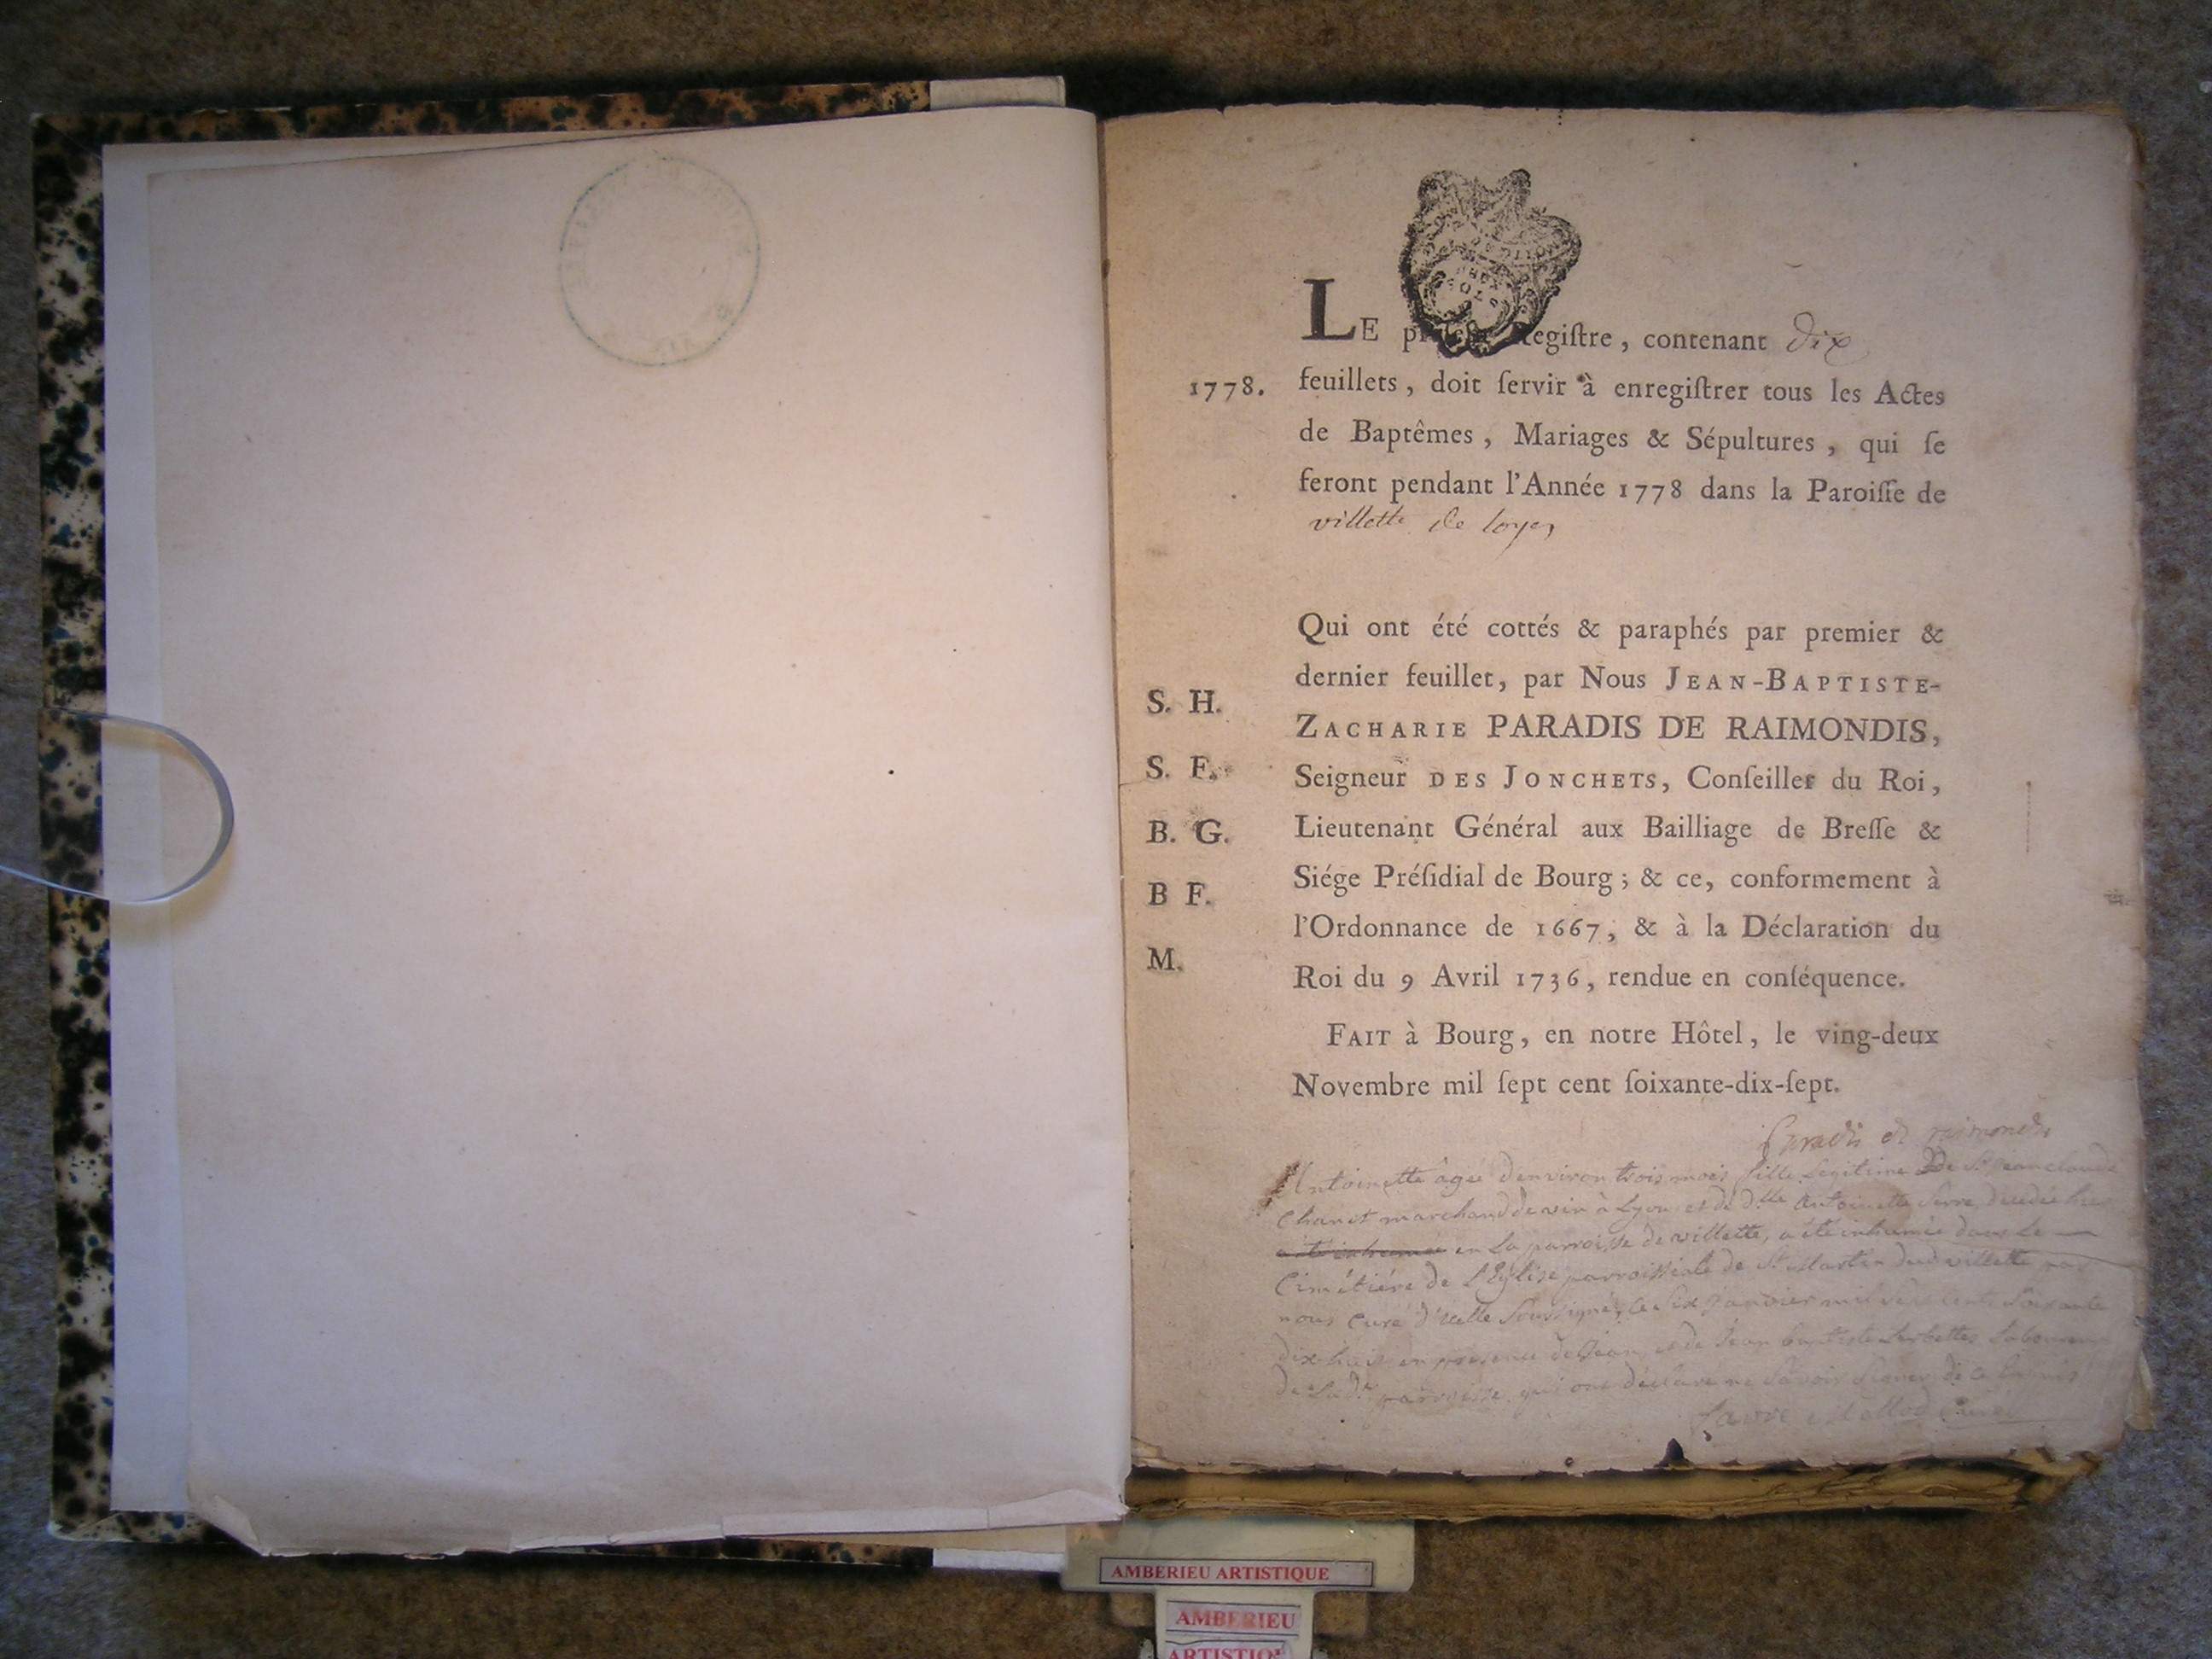 LE présent Regiſtre, contenant dix
1778. feuillets, doit ſervir à enregiſtrer tous les Actes
de Baptêmes, Mariages & Sépultures, qui ſe
feront pendant l'Année 1778 dans la Paroiſſe de
villette de loyes
Qui ont été cottés & paraphés par premier &
dernier feuillet, par Nous JEAN-BAPTISTE-
S. H.
ZACHARIE PARADIS DE RAIMONDIS,
S. F.
Seigneur DES JONCHETS, Conſeiller du Roi,
B. G.
Lieutenant Général aux Bailliage de Breſſe &
B F.
Siége Préſidial de Bourg; & ce, conformement à
l'Ordonnance de 1667, & à la Déclaration du
M.
Roi du 9 Avril 1736, rendue en conſéquence.
FAIT à Bourg, en notre Hôtel, le ving-deux
Novembre mil ſept cent ſoixante-dix-ſept.
Paradis de raimondis
Antoinette âgée d'environ trois mois fille Legitime De Sr. jean claude
Chanet marchand de vin à Lyon et de dlle Antoinette Serre, decedée hier
a été inhumée en La parroisse de villette, a été inhumée dans Le
Cimétiére de L'Eglise parroissiale de St. Martin dud villette par
nous Curé d'icelle Soussigné, le six janvier mil sept cents soixante
dix huit en presence de jean, et de jean baptiste
de La de. parroisse qui ont déclaré ne Savoir Signer de ce Enquis
Curé
AMBERIEU ARTISTIQUE
AMBERIEU
ARTISTIQUE